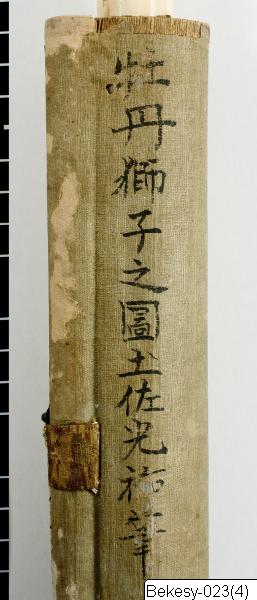 牡丹獅子之圖土佐光祐筆
Bekesy-023(4)